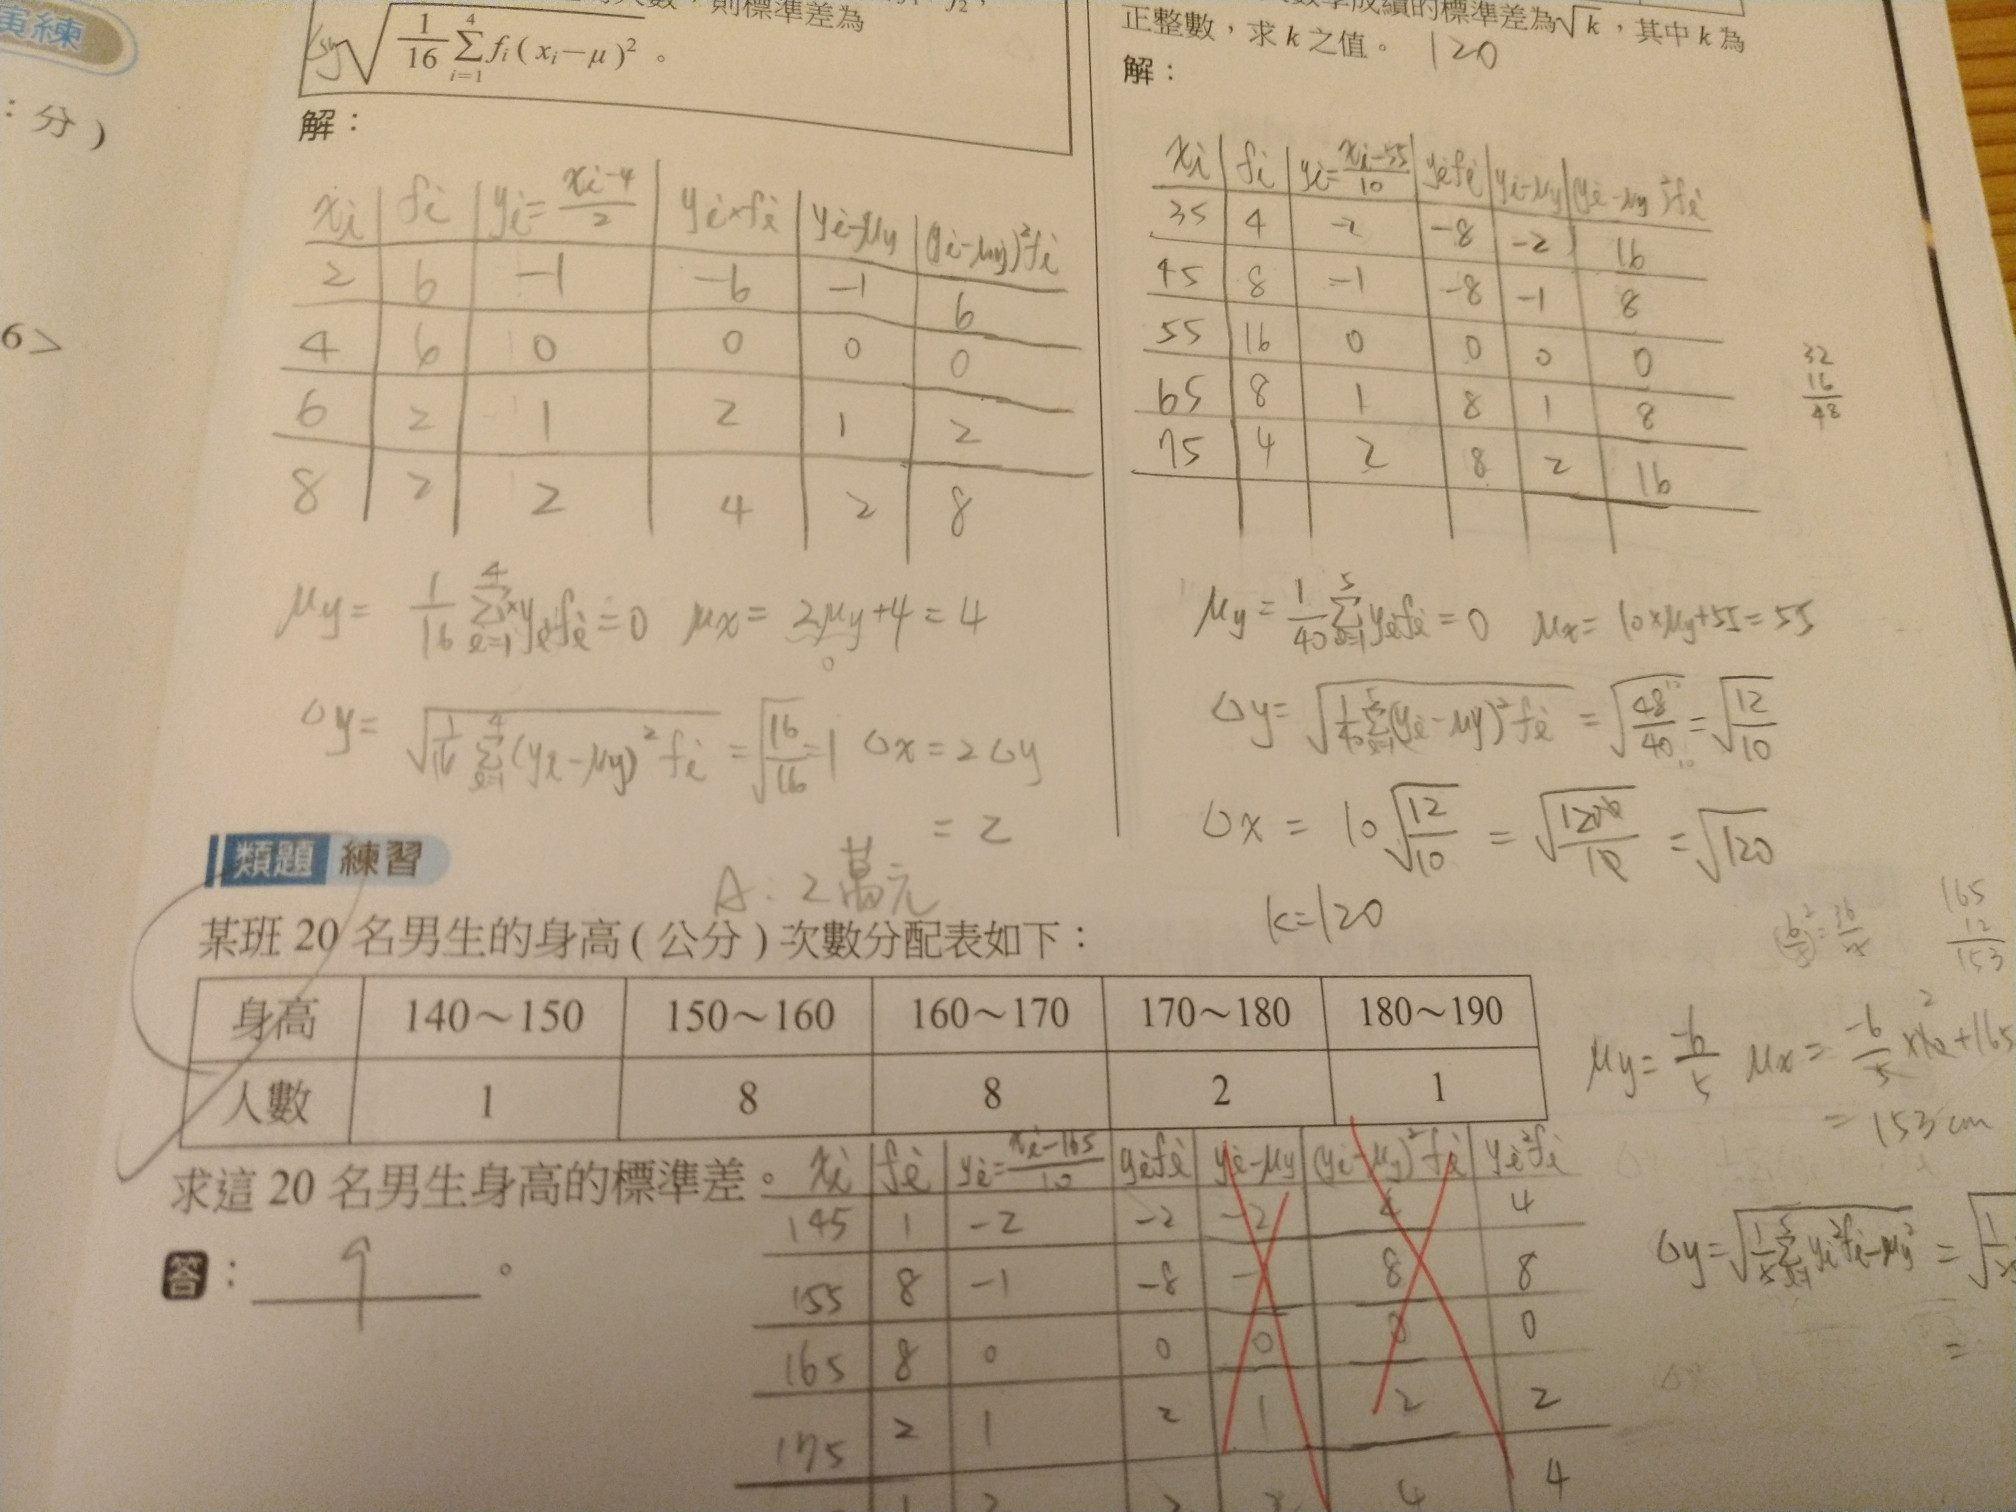 演練
：分）
6>
則標準差為
√ 1/16 Σ(i=1→4) fi(xi−μ)² 。
解：
xi | fi | yi = (xi−4)/2 | yi×fi | yi−μy | (yi−μy)²fi
2 | 6 | −1 | −6 | −1 | 6
4 | 6 | 0 | 0 | 0 | 0
6 | 2 | 1 | 2 | 1 | 2
8 | 2 | 2 | 4 | 2 | 8
μy = 1/16 Σ(i=1→4) yifi = 0 μx = 2μy+4 = 4
0
σy = √(1/16 Σ(i=1→4) (yi−μy)² fi) = √(16/16) = 1 σx = 2σy
= 2
A：2萬元
成績的標準差為√k，其中 k 為
正整數，求 k 之值。 120
解：
xi | fi | yi = (xi−55)/10 | yifi | yi−μy | (yi−μy)²fi
35 | 4 | −2 | −8 | −2 | 16
45 | 8 | −1 | −8 | −1 | 8
55 | 16 | 0 | 0 | 0 | 0
65 | 8 | 1 | 8 | 1 | 8
75 | 4 | 2 | 8 | 2 | 16
32
16
48
μy = 1/40 Σ(i=1→5) yifi = 0 μx = 10×μy+55 = 55
σy = √(1/40 Σ(i=1→5) (yi−μy)² fi) = √(48/40) = √(12/10)
σx = 10√(12/10) = √(1200/10) = √120
k=120
類題 練習
某班 20 名男生的身高（公分）次數分配表如下：
身高 | 140～150 | 150～160 | 160～170 | 170～180 | 180～190
人數 | 1 | 8 | 8 | 2 | 1
求這 20 名男生身高的標準差。
答： 9 。
xi | fi | yi = (xi−165)/10 | yifi | yi−μy | (yi−μy)²fi | yi²fi
145 | 1 | −2 | −2 | −2 | 4 | 4
155 | 8 | −1 | −8 | −1 | 8 | 8
165 | 8 | 0 | 0 | 0 | 0 | 0
175 | 2 | 1 | 2 | 1 | 2 | 2
1 | 2 | 2 | 2 | 4 | 4
165
12
153
μy = −6/5 μx = −6/5 ×10+165
= 153 cm
σy = √(1/5 Σ yi²fi−μy²) =
=